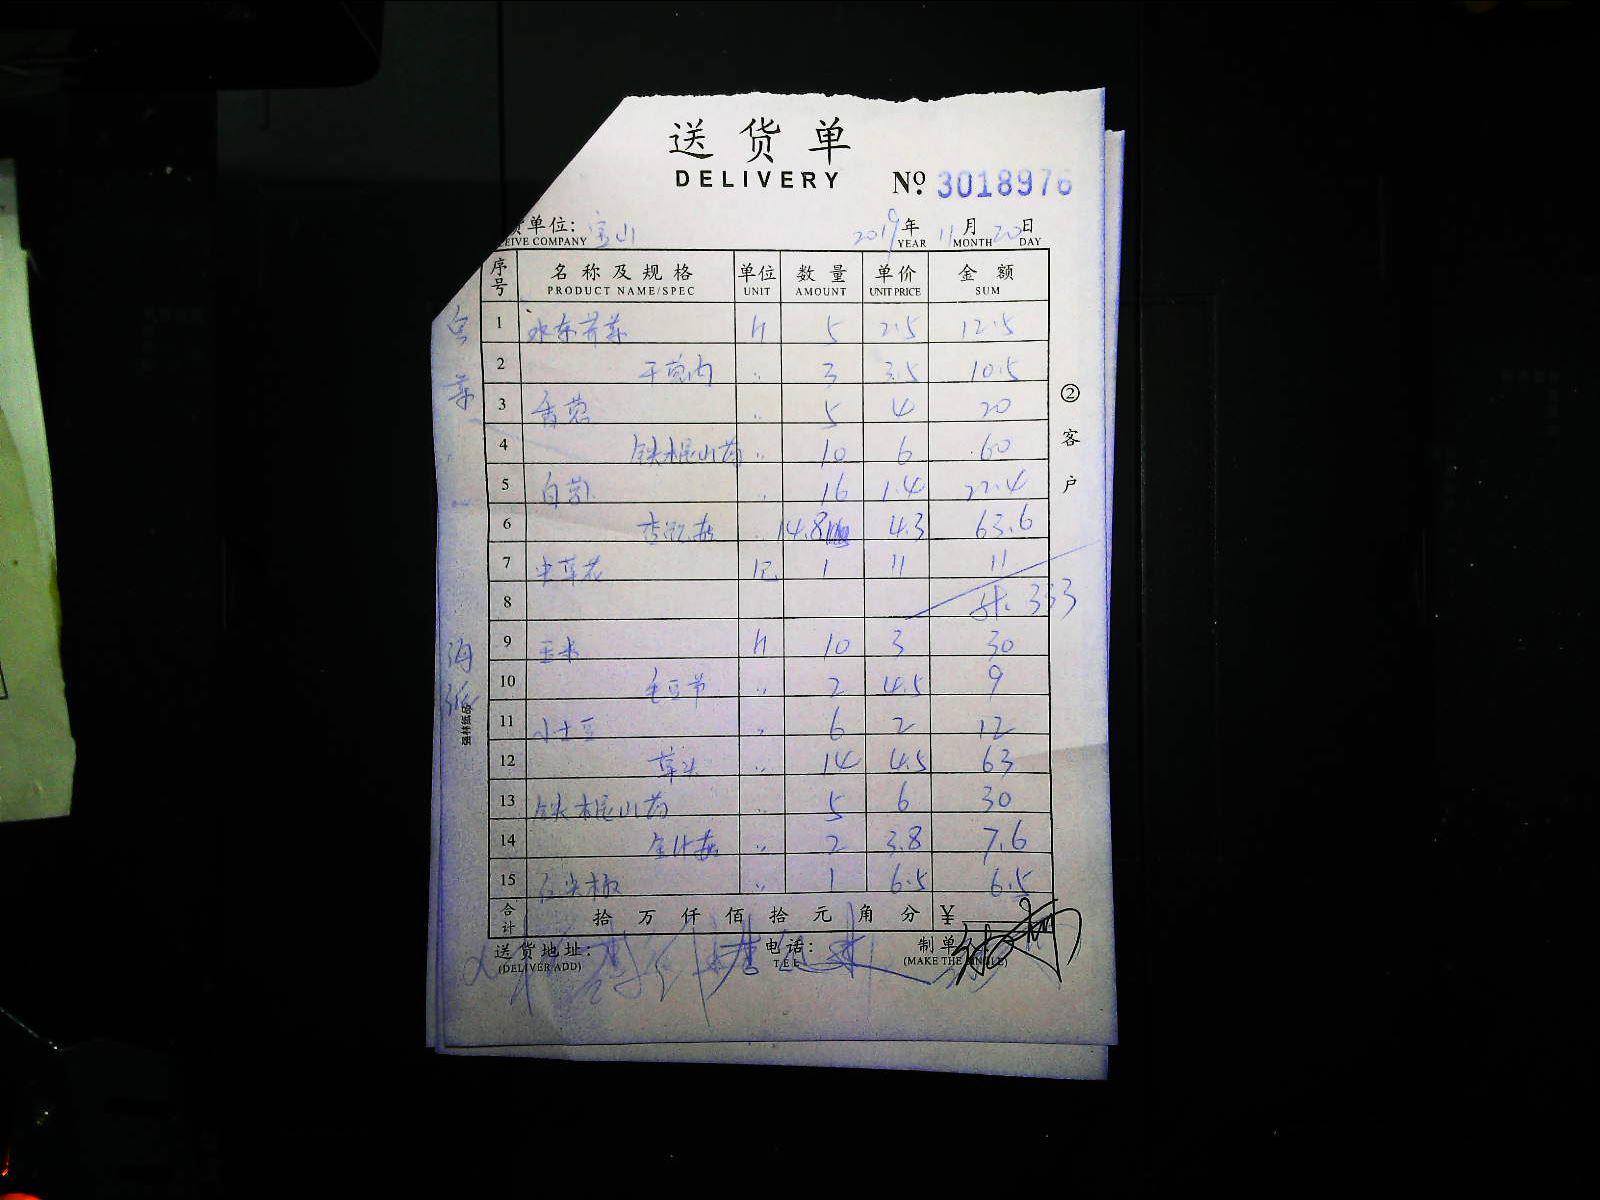 送货单
DELIVERY
№ 3018976
货单位: 宝山 2019年 11月 20日
EIVE COMPANY YEAR MONTH DAY
序号 名称及规格 单位 数量 单价 金额
PRODUCT NAME/SPEC UNIT AMOUNT UNIT PRICE SUM
1 水东芥菜 斤 5 2.5 12.5
2 〃 3 3.5 10.5
3 香葱 〃 5 4 20
4 铁棍山药 〃 10 6 60
5 〃 16 1.4 22.4
6 杏鲍菇 〃 14.8 4.3 63.6
7 虫草花 1 11 11
8 333
9 玉米 斤 10 3 30
10 毛豆节 〃 2 4.5 9
11 小土豆 〃 6 2 12
12 草头 〃 14 4.5 63
13 铁棍山药 〃 5 6 30
14 金针菇 〃 2 3.8 7.6
15 尖椒 〃 1 6.5 6.5
合计 拾 万 仟 佰 拾 元 角 分 ¥
送货地址: 电话: 制单
(DELIVER ADD) TEL (MAKE THE SINGLE)
②客户
强林纸品